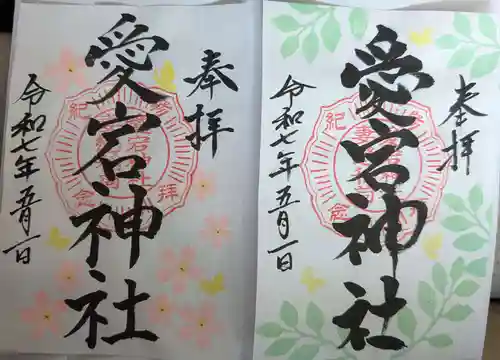 奉拝
愛宕神社
令和七年五月一日
参拝紀念
奉拝
愛宕神社
令和七年五月一日